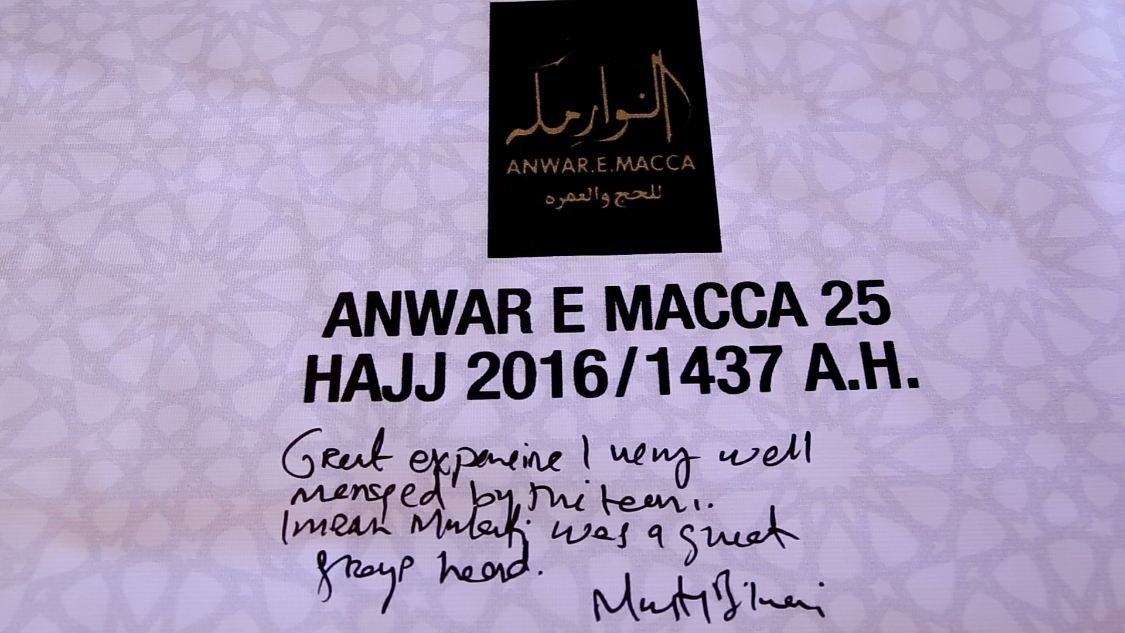 النوار مكه
ANWAR.E.MACCA
للحج والعمره
ANWAR E MACCA 25
HAJJ 2016/1437 A.H.
Great experience / very well
managed by the team.
Imran was a great
group head.